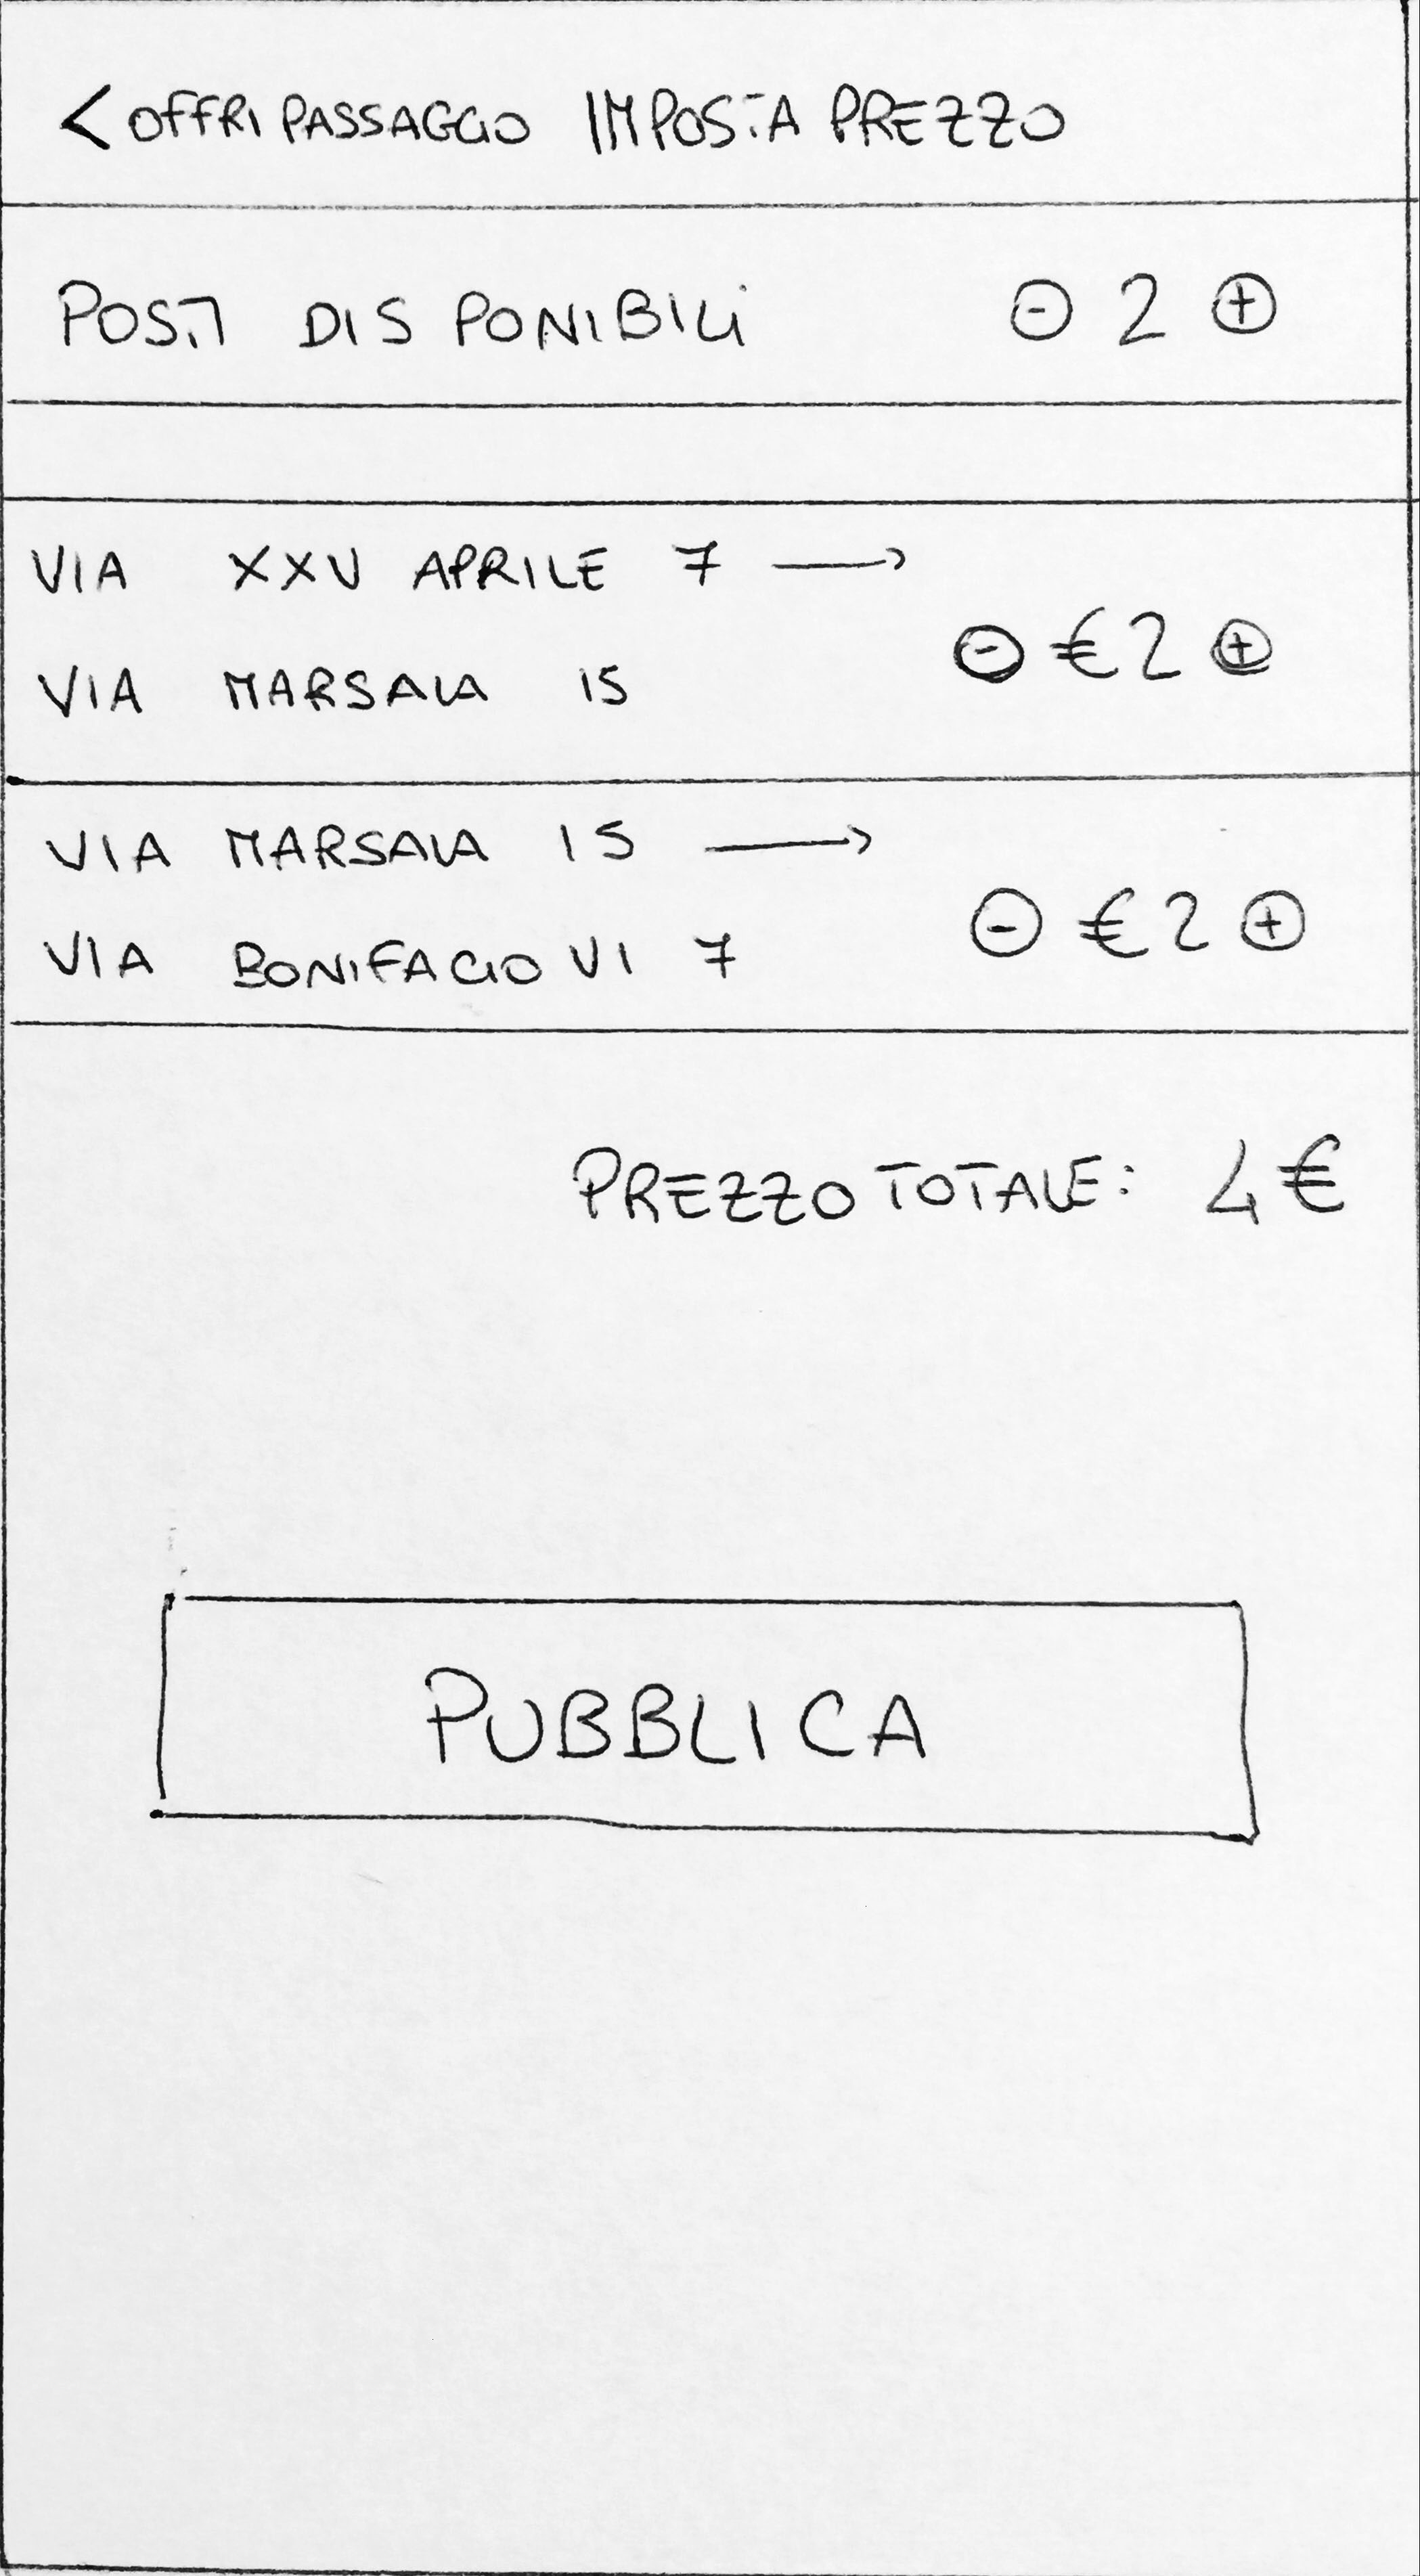 < OFFRI PASSAGGIO IMPOSTA PREZZO
POSTI DISPONIBILI - 2 +
VIA XXV APRILE 7 →
- € 2 +
VIA MARSALA 15
VIA MARSALA 15 →
- € 2 +
VIA BONIFACIO VI 7
PREZZO TOTALE: 4 €
PUBBLICA